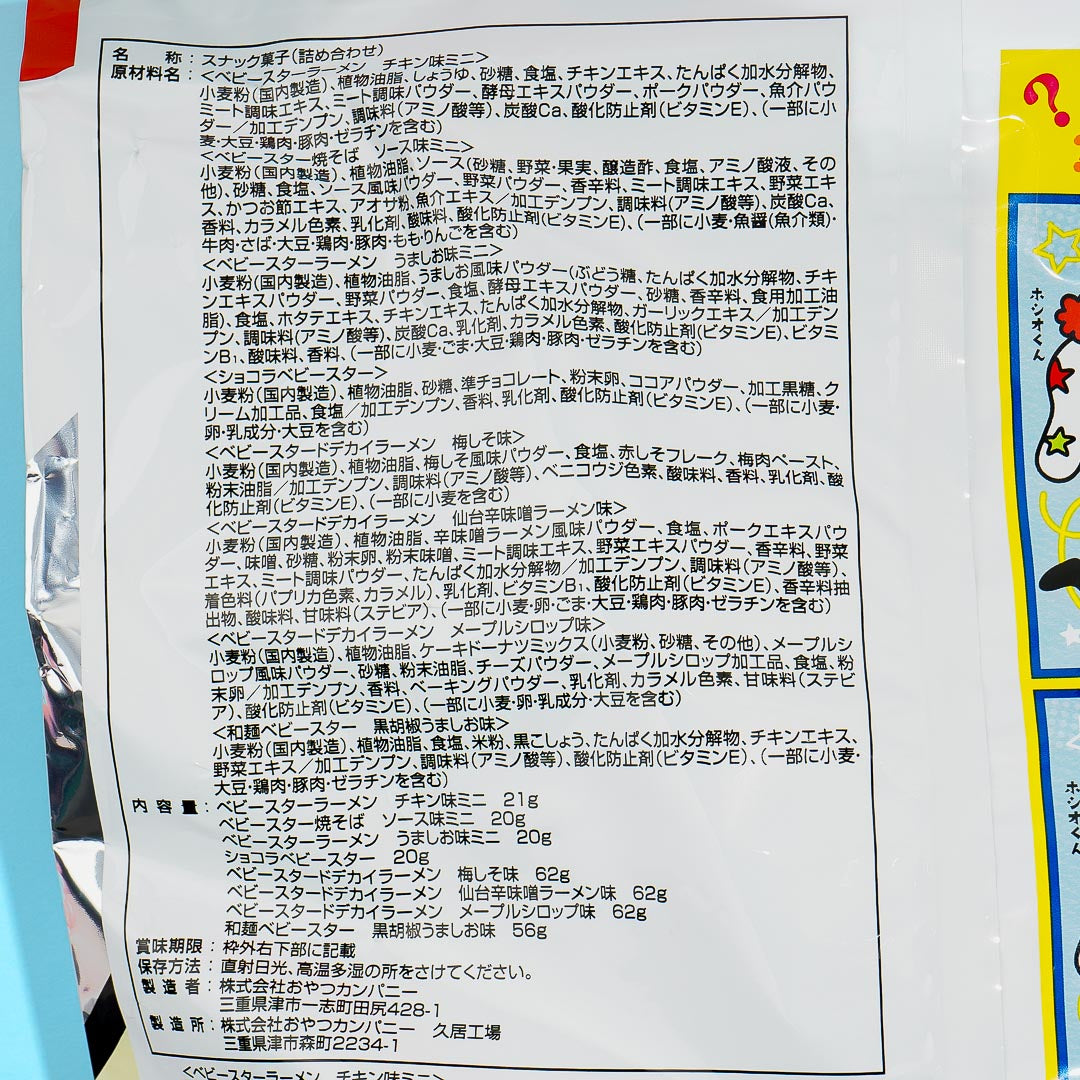 名　称：スナック菓子（詰め合わせ）
原材料名：＜ベビースターラーメン　チキン味ミニ＞
小麦粉（国内製造）、植物油脂、しょうゆ、砂糖、食塩、チキンエキス、たんぱく加水分解物、
ミート調味エキス、ミート調味パウダー、酵母エキスパウダー、ポークパウダー、魚介パウ
ダー／加工デンプン、調味料（アミノ酸等）、炭酸Ca、酸化防止剤（ビタミンE）、（一部に小
麦・大豆・鶏肉・豚肉・ゼラチンを含む）
＜ベビースター焼そば　ソース味ミニ＞
小麦粉（国内製造）、植物油脂、ソース（砂糖、野菜・果実、醸造酢、食塩、アミノ酸液、その
他）、砂糖、食塩、ソース風味パウダー、野菜パウダー、香辛料、ミート調味エキス、野菜エキ
ス、かつお節エキス、アオサ粉、魚介エキス／加工デンプン、調味料（アミノ酸等）、炭酸Ca、
香料、カラメル色素、乳化剤、酸味料、酸化防止剤（ビタミンE）、（一部に小麦・魚醤（魚介類）・
牛肉・さば・大豆・鶏肉・豚肉・もも・りんごを含む）
＜ベビースターラーメン　うましお味ミニ＞
小麦粉（国内製造）、植物油脂、うましお風味パウダー（ぶどう糖、たんぱく加水分解物、チキ
ンエキスパウダー、野菜パウダー、食塩、酵母エキスパウダー、砂糖、香辛料、食用加工油
脂）、食塩、ホタテエキス、チキンエキス、たんぱく加水分解物、ガーリックエキス／加工デン
プン、調味料（アミノ酸等）、炭酸Ca、乳化剤、カラメル色素、酸化防止剤（ビタミンE）、ビタミ
ンB₁、酸味料、香料、（一部に小麦・ごま・大豆・鶏肉・豚肉・ゼラチンを含む）
＜ショコラベビースター＞
小麦粉（国内製造）、植物油脂、砂糖、準チョコレート、粉末卵、ココアパウダー、加工黒糖、ク
リーム加工品、食塩／加工デンプン、香料、乳化剤、酸化防止剤（ビタミンE）、（一部に小麦・
卵・乳成分・大豆を含む）
＜ベビースタードデカイラーメン　梅しそ味＞
小麦粉（国内製造）、植物油脂、梅しそ風味パウダー、食塩、赤しそフレーク、梅肉ペースト、
粉末油脂／加工デンプン、調味料（アミノ酸等）、ベニコウジ色素、酸味料、香料、乳化剤、酸
化防止剤（ビタミンE）、（一部に小麦を含む）
＜ベビースタードデカイラーメン　仙台辛味噌ラーメン味＞
小麦粉（国内製造）、植物油脂、辛味噌ラーメン風味パウダー、食塩、ポークエキスパウ
ダー、味噌、砂糖、粉末卵、粉末味噌、ミート調味エキス、野菜エキスパウダー、香辛料、野菜
エキス、ミート調味パウダー、たんぱく加水分解物／加工デンプン、調味料（アミノ酸等）、
着色料（パプリカ色素、カラメル）、乳化剤、ビタミンB₁、酸化防止剤（ビタミンE）、香辛料抽
出物、酸味料、甘味料（ステビア）、（一部に小麦・卵・ごま・大豆・鶏肉・豚肉・ゼラチンを含む）
＜ベビースタードデカイラーメン　メープルシロップ味＞
小麦粉（国内製造）、植物油脂、ケーキドーナツミックス（小麦粉、砂糖、その他）、メープルシ
ロップ風味パウダー、砂糖、粉末油脂、チーズパウダー、メープルシロップ加工品、食塩、粉
末卵／加工デンプン、香料、ベーキングパウダー、乳化剤、カラメル色素、甘味料（ステビ
ア）、酸化防止剤（ビタミンE）、（一部に小麦・卵・乳成分・大豆を含む）
＜和麺ベビースター　黒胡椒うましお味＞
小麦粉（国内製造）、植物油脂、食塩、米粉、黒こしょう、たんぱく加水分解物、チキンエキス、
野菜エキス／加工デンプン、調味料（アミノ酸等）、酸化防止剤（ビタミンE）、（一部に小麦・
大豆・鶏肉・豚肉・ゼラチンを含む）
内容量：ベビースターラーメン　チキン味ミニ　21g
ベビースター焼そば　ソース味ミニ　20g
ベビースターラーメン　うましお味ミニ　20g
ショコラベビースター　20g
ベビースタードデカイラーメン　梅しそ味　62g
ベビースタードデカイラーメン　仙台辛味噌ラーメン味　62g
ベビースタードデカイラーメン　メープルシロップ味　62g
和麺ベビースター　黒胡椒うましお味　56g
賞味期限：枠外右下部に記載
保存方法：直射日光、高温多湿の所をさけてください。
製造者：株式会社おやつカンパニー
三重県津市一志町田尻428-1
製造所：株式会社おやつカンパニー　久居工場
三重県津市森町2234-1
＜ベビースターラーメン　チキン味ミニ＞
?
ホシオくん
ホシオくん